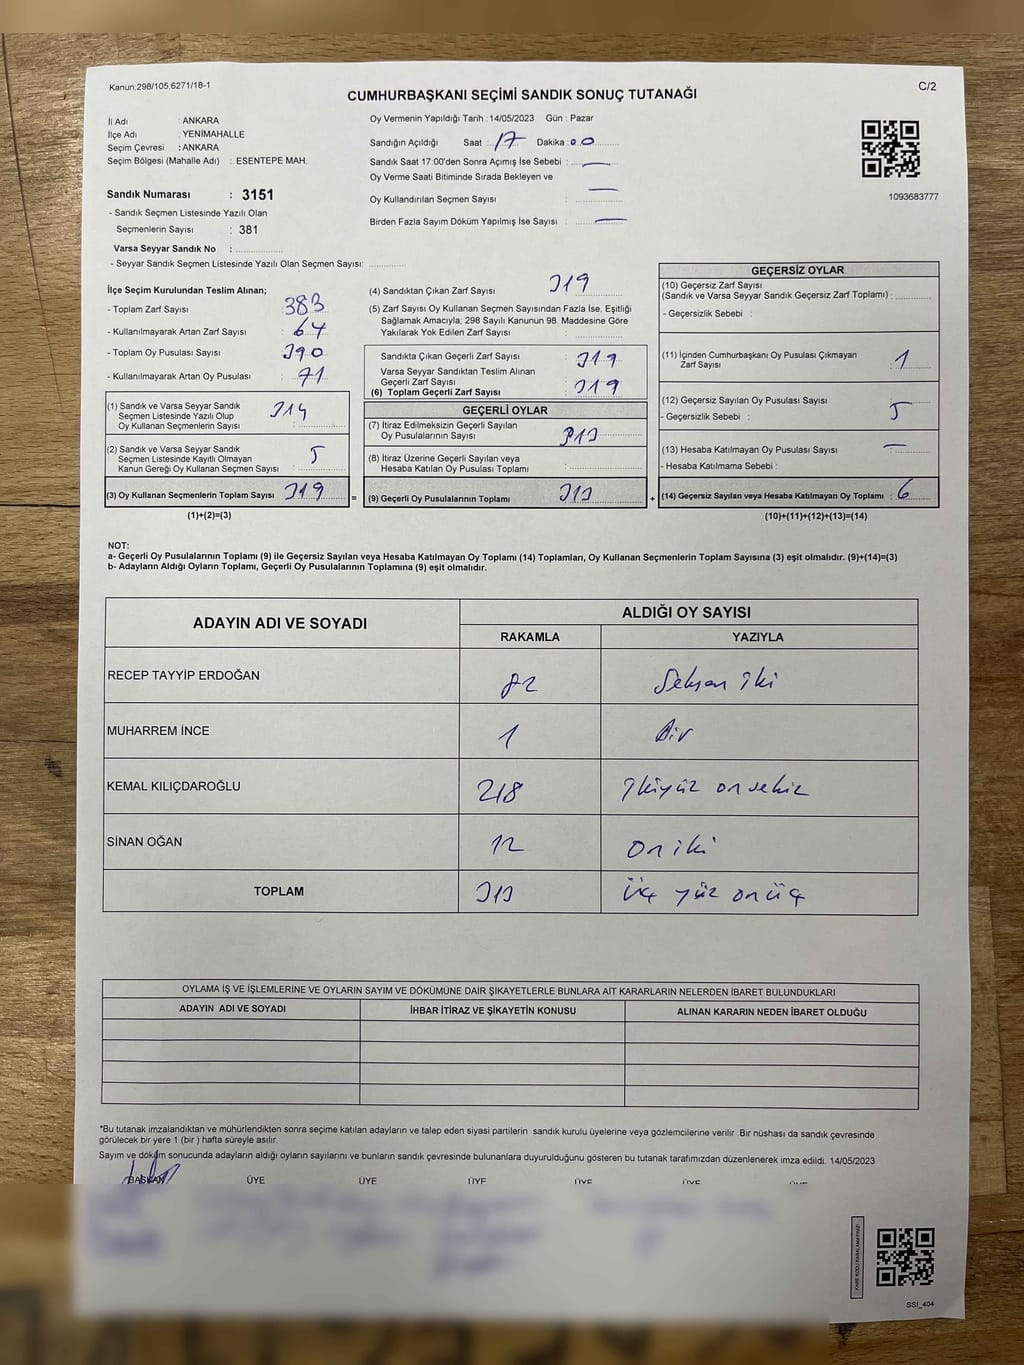 Kanun;298/105,6271/18-1
C/2
CUMHURBAŞKANI SEÇİMİ SANDIK SONUÇ TUTANAĞI
İl Adı : ANKARA
İlçe Adı : YENİMAHALLE
Seçim Çevresi : ANKARA
Seçim Bölgesi (Mahalle Adı) : ESENTEPE MAH.
Oy Vermenin Yapıldığı Tarih : 14/05/2023 Gün : Pazar
Sandığın Açıldığı Saat : 17 Dakika : 00
Sandık Saat 17:00'den Sonra Açımış İse Sebebi : —
Oy Verme Saati Bitiminde Sırada Bekleyen ve
Oy Kullandırılan Seçmen Sayısı : —
Birden Fazla Sayım Döküm Yapılmış İse Sayısı : —
1093683777
Sandık Numarası : 3151
- Sandık Seçmen Listesinde Yazılı Olan
Seçmenlerin Sayısı : 381
Varsa Seyyar Sandık No :
- Seyyar Sandık Seçmen Listesinde Yazılı Olan Seçmen Sayısı:
İlçe Seçim Kurulundan Teslim Alınan;
- Toplam Zarf Sayısı : 383
- Kullanılmayarak Artan Zarf Sayısı : 64
- Toplam Oy Pusulası Sayısı : 390
- Kullanılmayarak Artan Oy Pusulası : 71
(1) Sandık ve Varsa Seyyar Sandık
Seçmen Listesinde Yazılı Olup
Oy Kullanan Seçmenlerin Sayısı : 314
(2) Sandık ve Varsa Seyyar Sandık
Seçmen Listesinde Kayıtlı Olmayan
Kanun Gereği Oy Kullanan Seçmen Sayısı : 5
(3) Oy Kullanan Seçmenlerin Toplam Sayısı : 319
(1)+(2)=(3)
=
(4) Sandıktan Çıkan Zarf Sayısı : 319
(5) Zarf Sayısı Oy Kullanan Seçmen Sayısından Fazla İse, Eşitliği
Sağlamak Amacıyla; 298 Sayılı Kanunun 98. Maddesine Göre
Yakılarak Yok Edilen Zarf Sayısı :
Sandıkta Çıkan Geçerli Zarf Sayısı : 319
Varsa Seyyar Sandıktan Teslim Alınan
Geçerli Zarf Sayısı :
(6) Toplam Geçerli Zarf Sayısı : 319
GEÇERLİ OYLAR
(7) İtiraz Edilmeksizin Geçerli Sayılan
Oy Pusulalarının Sayısı : 313
(8) İtiraz Üzerine Geçerli Sayılan veya
Hesaba Katılan Oy Pusulası Toplamı :
(9) Geçerli Oy Pusulalarının Toplamı : 313
+
GEÇERSİZ OYLAR
(10) Geçersiz Zarf Sayısı
(Sandık ve Varsa Seyyar Sandık Geçersiz Zarf Toplamı) :
- Geçersizlik Sebebi :
(11) İçinden Cumhurbaşkanı Oy Pusulası Çıkmayan
Zarf Sayısı : 1
(12) Geçersiz Sayılan Oy Pusulası Sayısı : 5
- Geçersizlik Sebebi :
(13) Hesaba Katılmayan Oy Pusulası Sayısı : —
- Hesaba Katılmama Sebebi :
(14) Geçersiz Sayılan veya Hesaba Katılmayan Oy Toplamı : 6
(10)+(11)+(12)+(13)=(14)
NOT:
a- Geçerli Oy Pusulalarının Toplamı (9) ile Geçersiz Sayılan veya Hesaba Katılmayan Oy Toplamı (14) Toplamları, Oy Kullanan Seçmenlerin Toplam Sayısına (3) eşit olmalıdır. (9)+(14)=(3)
b- Adayların Aldığı Oyların Toplamı, Geçerli Oy Pusulalarının Toplamına (9) eşit olmalıdır.
ADAYIN ADI VE SOYADI
ALDIĞI OY SAYISI
RAKAMLA YAZIYLA
RECEP TAYYİP ERDOĞAN 82 Seksen iki
MUHARREM İNCE 1 Bir
KEMAL KILIÇDAROĞLU 218 İkiyüz onsekiz
SİNAN OĞAN 12 on iki
TOPLAM 313 Üç yüz onüç
OYLAMA İŞ VE İŞLEMLERİNE VE OYLARIN SAYIM VE DÖKÜMÜNE DAİR ŞİKAYETLERLE BUNLARA AİT KARARLARIN NELERDEN İBARET BULUNDUKLARI
ADAYIN ADI VE SOYADI İHBAR İTİRAZ VE ŞİKAYETİN KONUSU ALINAN KARARIN NEDEN İBARET OLDUĞU
*Bu tutanak imzalandıktan ve mühürlendikten sonra seçime katılan adayların ve talep eden siyasi partilerin sandık kurulu üyelerine veya gözlemcilerine verilir .Bir nüshası da sandık çevresinde
görülecek bir yere 1 (bir ) hafta süreyle asılır.
Sayım ve döküm sonucunda adayların aldığı oyların sayılarını ve bunların sandık çevresinde bulunanlara duyurulduğunu gösteren bu tutanak tarafımızdan düzenlenerek imza edildi. 14/05/2023
BAŞKAN ÜYE ÜYE ÜYE ÜYE ÜYE ÜYE
SSI_404